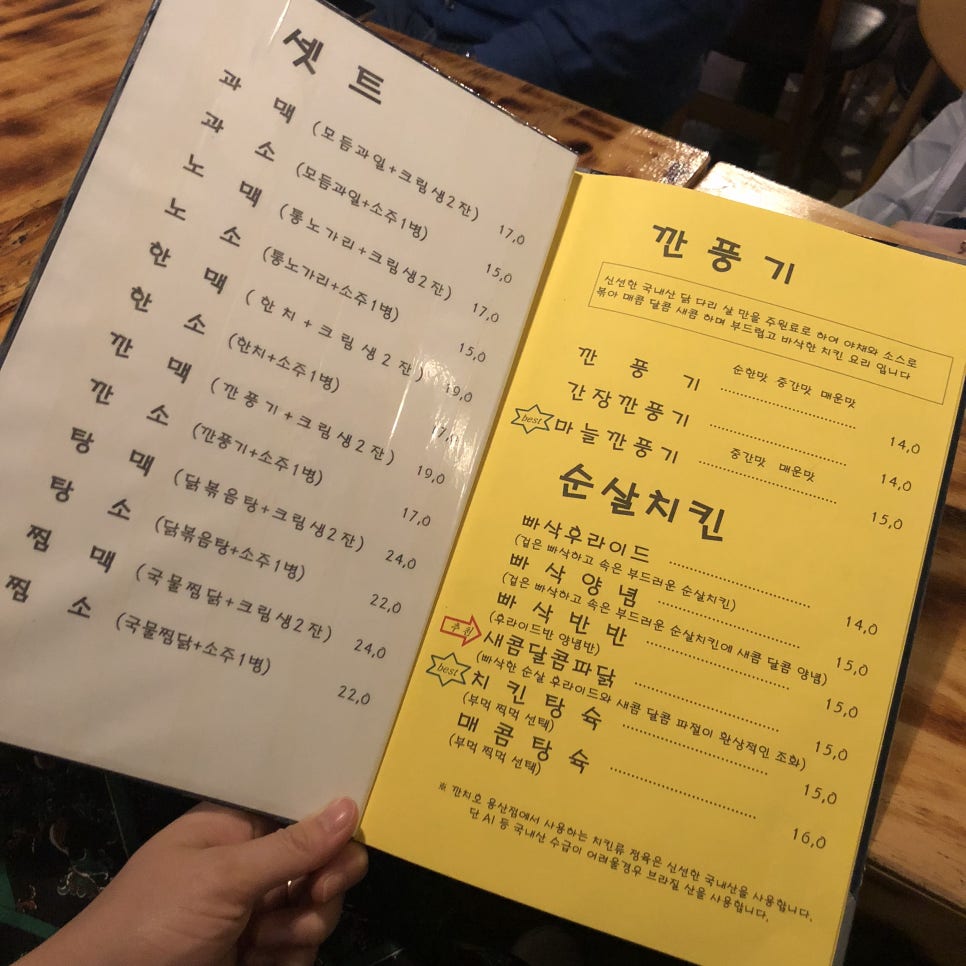 셋 트
과 맥 (모듬과일+크림생2잔) 17,0
과 소 (모듬과일+소주1병) 15,0
노 맥 (통노가리+크림생2잔) 17,0
노 소 (통노가리+소주1병) 15,0
한 맥 (한치+크림생2잔) 19,0
한 소 (한치+소주1병) 17,0
깐 맥 (깐풍기+크림생2잔) 19,0
깐 소 (깐풍기+소주1병) 17,0
탕 맥 (닭볶음탕+크림생2잔) 24,0
탕 소 (닭볶음탕+소주1병) 22,0
찜 맥 (국물찜닭+크림생2잔) 24,0
찜 소 (국물찜닭+소주1병) 22,0
깐 풍 기
신선한 국내산 닭 다리 살 만을 주원료로 하여 야채와 소스로
볶아 매콤 달콤 새콤 하며 부드럽고 바삭한 치킨 요리 입니다
깐 풍 기 순한맛 중간맛 매운맛 14,0
간장깐풍기 14,0
best 마늘깐풍기 중간맛 매운맛 15,0
순살치킨
빠삭후라이드 14,0
(겉은 빠삭하고 속은 부드러운 순살치킨)
빠 삭 양 념 15,0
(겉은 빠삭하고 속은 부드러운 순살치킨에 새콤 달콤 양념)
빠 삭 반 반 15,0
(후라이드반 양념반)
추천 새콤달콤파닭 15,0
(빠삭한 순살 후라이드와 새콤 달콤 파절이 환상적인 조화)
best 치 킨 탕 숙 15,0
(부먹 찍먹 선택)
매 콤 탕 숙 16,0
(부먹 찍먹 선택)
※ 깐치호 용산점에서 사용하는 치킨류 정육은 신선한 국내산을 사용합니다.
단 AI 등 국내산 수급이 어려울경우 브라질 산을 사용합니다.